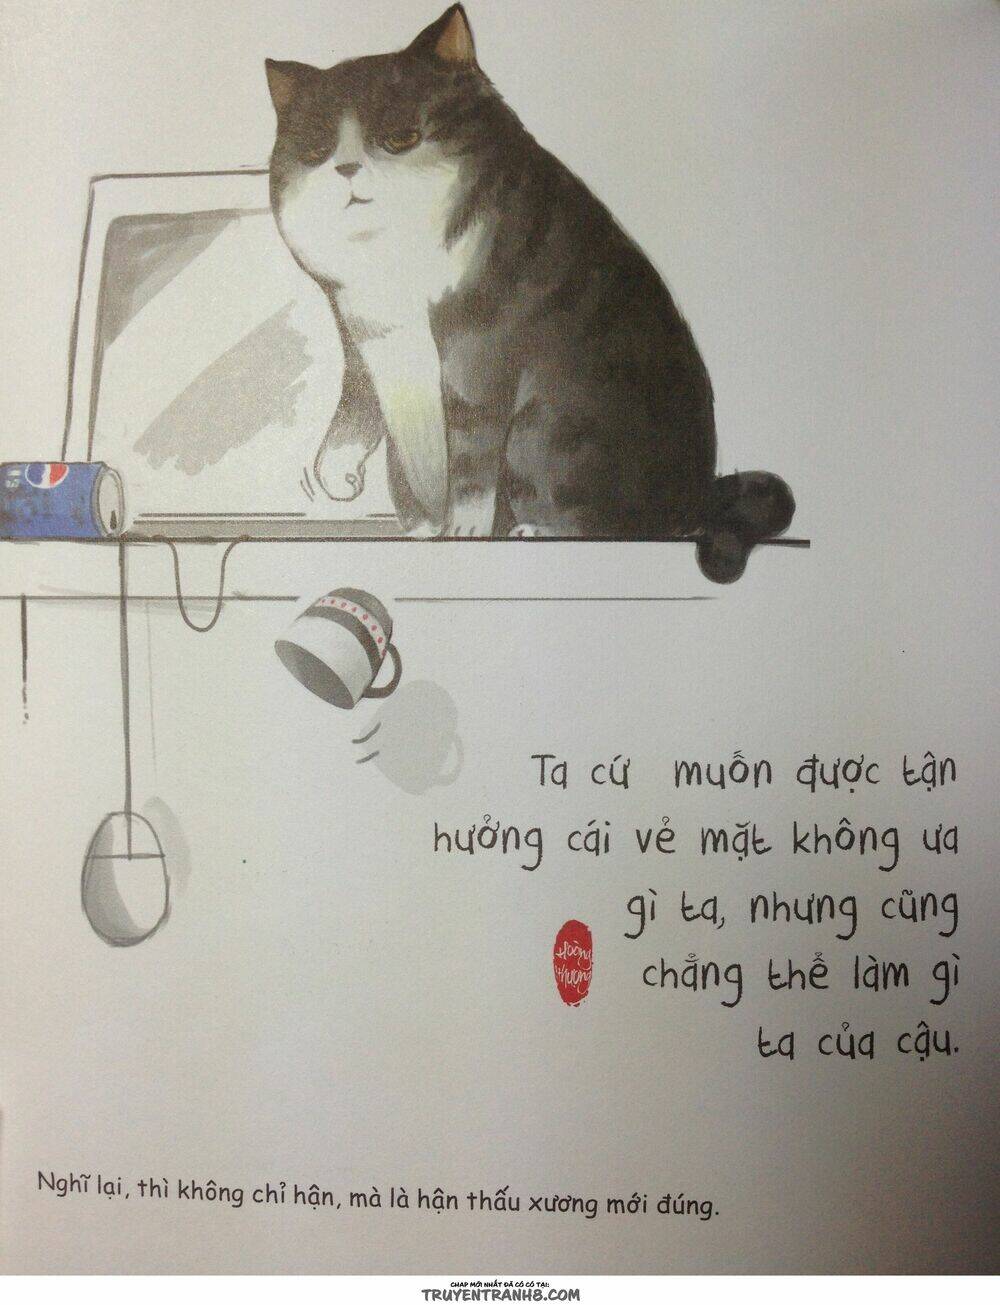 Ta cứ muốn được tận
hưởng cái vẻ mặt không ưa
gì ta, nhưng cũng
chẳng thể làm gì
ta của cậu.
Hoàng
Thượng
Nghĩ lại, thì không chỉ hận, mà là hận thấu xương mới đúng.
CHAP MỚI NHẤT ĐÃ CÓ CÓ TẠI:
TRUYENTRANH8.COM